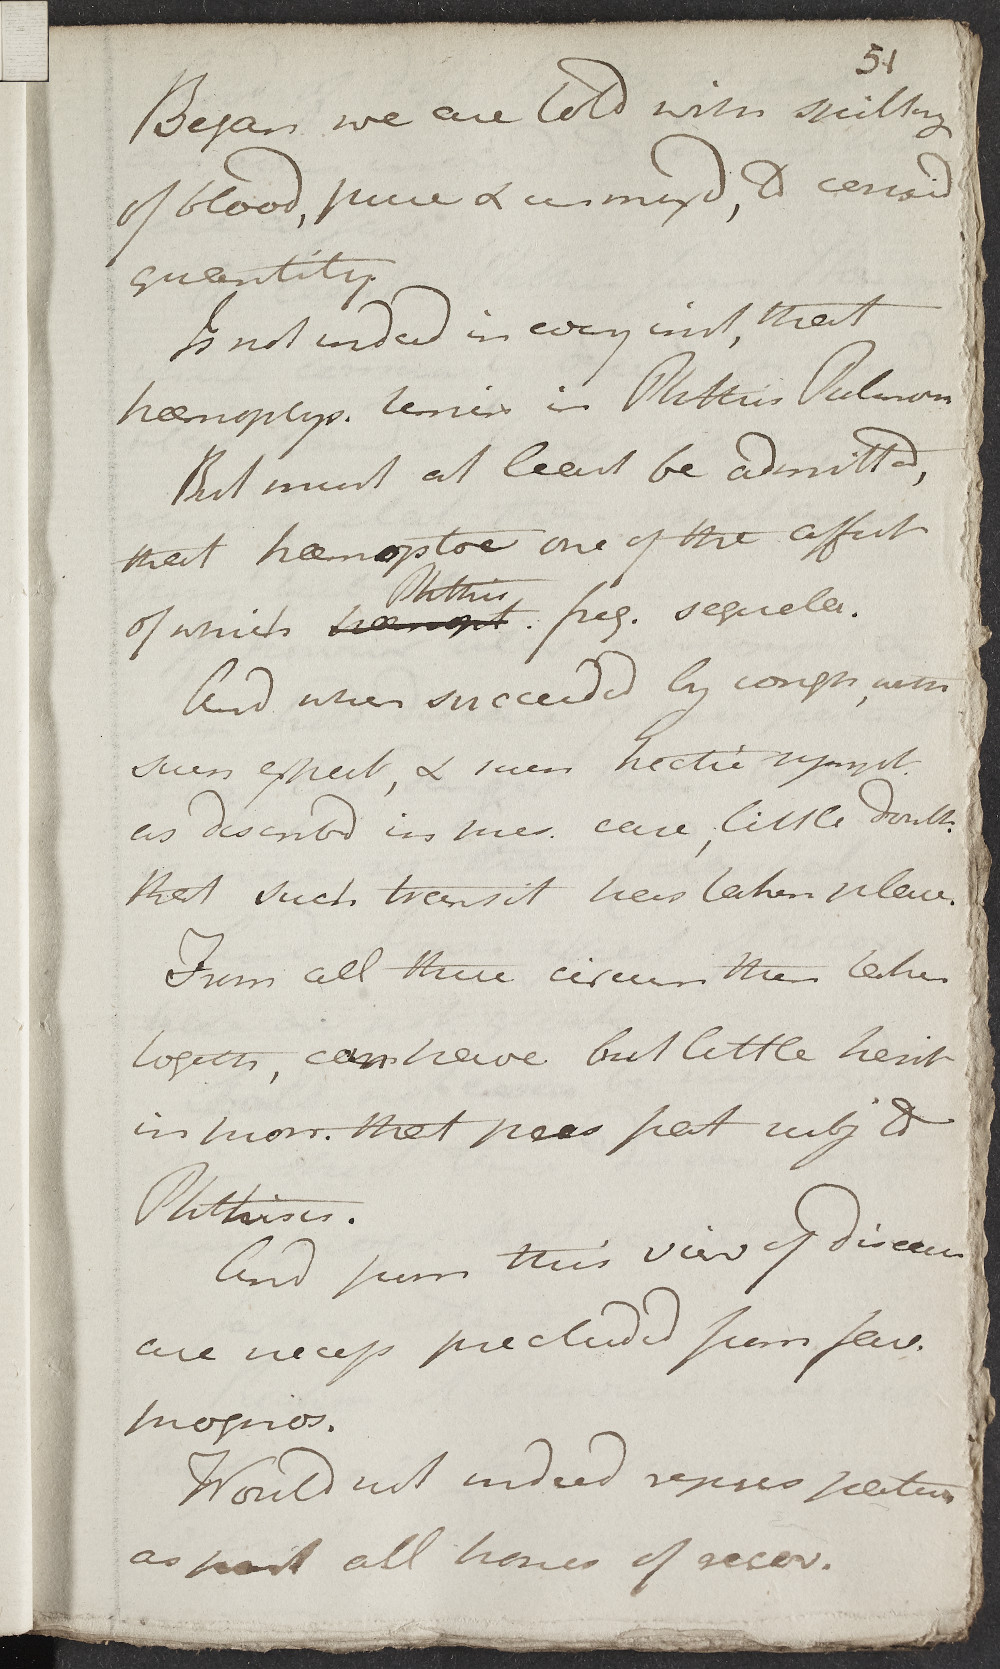 51
Began we are told with spitting
of blood, pure & unmixd, to consid
quantity.
Is not indeed in every inst, that
hæmoptys. termin in Phthisis Pulmon
But must at least be admitted,
that hæmoptoe one of the affect
of which Phthisis hæmopt. freq. sequela.
And when succeeded by cough, with
such expect, & such hectic sympt.
as describd in this case, little doubt
that such transit has taken place.
From all these circum then taken
togeth, can have but little hesit
in pron. that this pat subj to
Phthisis.
And from this view of disease
are necess precluded from fav.
prognos.
Would not indeed repres patient
as past all hopes of recov.